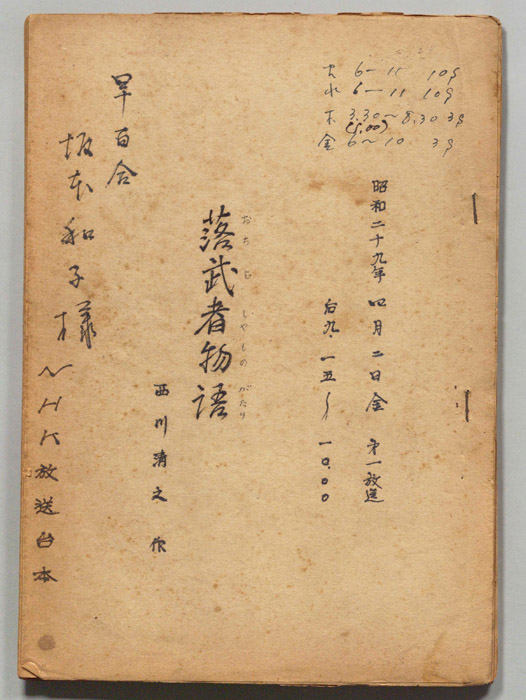 火 6— 11 10S
水 6— 11 10S
木 3.30〜8.30 3S
(5.00)
金 6〜10 3S
昭和二十九年 四月二日金 第一放送
后九.一五〜一〇.〇〇
おち む しやもの がたり
落武者物語
西川清之 作
早百合
坂本和子様
NHK放送台本